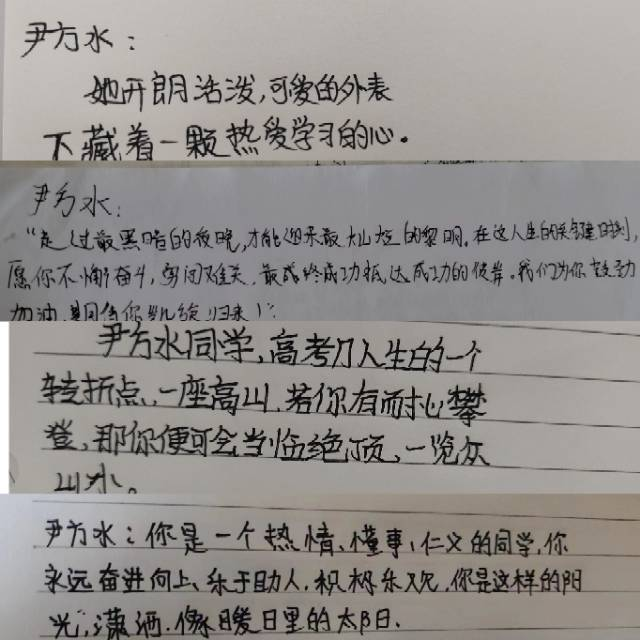 尹方水：
她开朗活泼，可爱的外表
下藏着一颗热爱学习的心。
尹方水：
“走过最黑暗的夜晚，才能迎来最灿烂的黎明。在这人生的关键时刻，
愿你不懈奋斗，勇闯难关，最终成功抵达成功的彼岸。我们为你鼓劲
加油，期待你凯旋归来！”
尹方水同学，高考乃人生的一个
转折点、一座高山，若你有耐心攀
登，那你便可会当临绝顶，一览众
山小。
尹方水：你是一个热情、懂事、仁义的同学，你
永远奋进向上、乐于助人，积极乐观，你是这样的阳
光，潇洒，像暖日里的太阳。